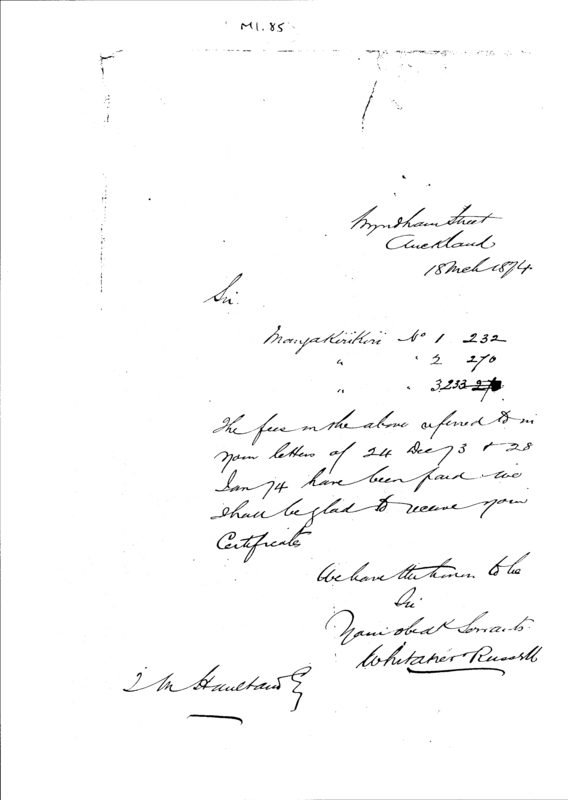 M1.85
Wyndham Street
Auckland
18 Mch 1874.
Sir.
Mangakirikiri No 1 232
" " 2 270
" " 3 233
The fees on the above referred to in
your letters of 24 Dec 73 + 28
Jan 74 have been paid we
shall be glad to receive your
Certificate
We have the honor to be
Sir
Your obedt Servants
Whitaker & Russell
T M Haultain Esq